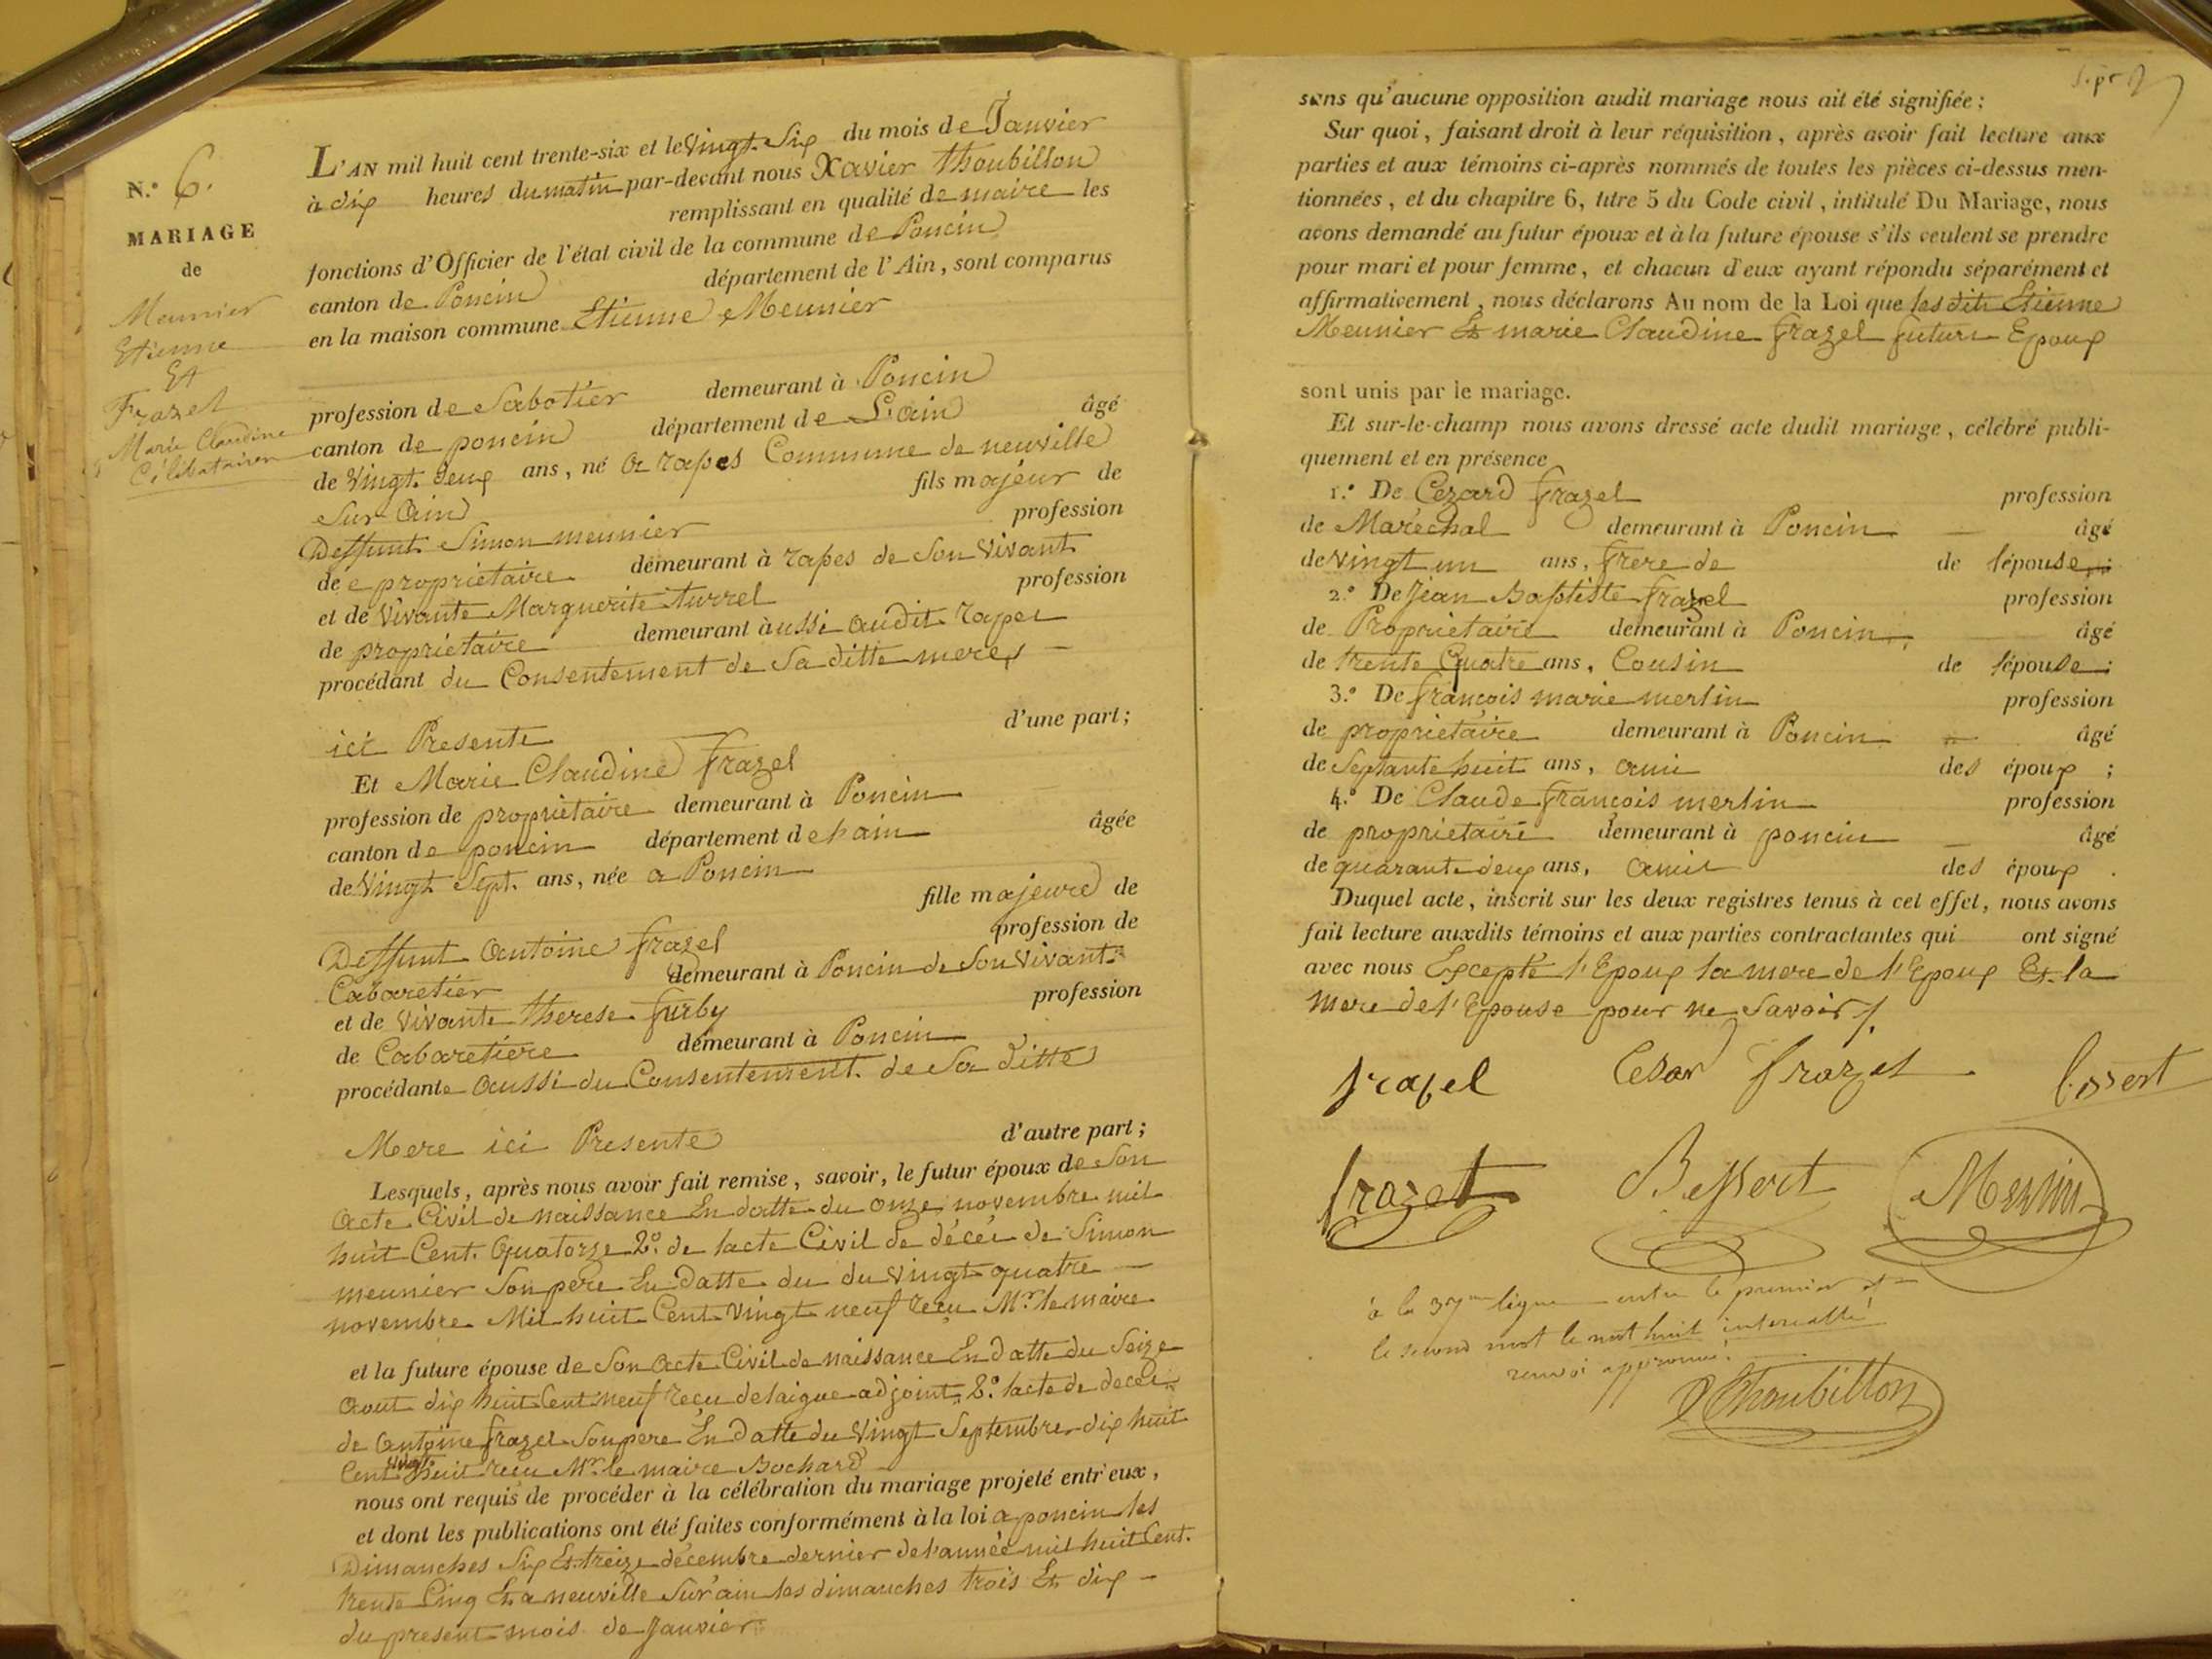 N.° 6.
MARIAGE
de
Meunier
Etienne
Et
Frazel
Marie Claudine
Célibataires
L'AN mil huit cent trente-six et le Vingt-Six du mois de Janvier
à dix heures du matin par-devant nous Xavier Thoubillon
remplissant en qualité de maire les
fonctions d'Officier de l'état civil de la commune de Poncin
canton de Poncin département de l'Ain, sont comparus
en la maison commune Etienne Meunier
profession de Sabotier demeurant à Poncin
canton de poncin département de L'ain âgé
de Vingt deux ans, né a rapes Commune de neuville
Sur Ain fils majeur de
Deffunt Simon meunier profession
de propriétaire demeurant à rapes de Son Vivant
et de Vivante Marguerite turrel profession
de propriétaire demeurant aussi audit rapes
procédant du Consentement de Sa ditte mere
ici Presente d'une part;
Et Marie Claudine Frazel
profession de propriétaire demeurant à Poncin
canton de poncin département de l'ain âgée
de Vingt Sept. ans, née a Poncin
fille majeure de
Deffunt Antoine frazel profession de
Cabaretier demeurant à Poncin de Son Vivant
et de Vivante therese furby profession
de Cabaretiere demeurant à Poncin
procédante aussi du Consentement de Sa ditte
Mere ici Presente d'autre part;
Lesquels, après nous avoir fait remise, savoir, le futur époux de Son
acte Civil de naissance En datte du onze novembre mil
huit Cent. Quatorze 2.° de lacte Civil de décés de Simon
meunier Son pere En Datte du du Vingt quatre
novembre Mil huit Cent Vingt neuf reçu Mr le maire
et la future épouse de Son acte Civil de naissance En datte du Seize
aout dix huit Cent neuf reçu delaigue adjoint 2.° lacte de decés
de Antoine frazel Son pere En Datte du Vingt Septembre dix huit
Cent vingt huit reçu Mr le maire Bochard
nous ont requis de procéder à la célébration du mariage projeté entr'eux,
et dont les publications ont été faites conformément à la loi a poncin les
Dimanches Six Et treize décembre dernier de l'année mil huit Cent.
trente Cinq Et a neuville Sur ain les dimanches trois Et dix
du present mois de Janvier
sans qu'aucune opposition audit mariage nous ait été signifiée;
Sur quoi, faisant droit à leur réquisition, après avoir fait lecture aux
parties et aux témoins ci-après nommés de toutes les pièces ci-dessus men-
tionnées, et du chapitre 6, titre 5 du Code civil, intitulé Du Mariage, nous
avons demandé au futur époux et à la future épouse s'ils veulent se prendre
pour mari et pour femme, et chacun d'eux ayant répondu séparément et
affirmativement, nous déclarons Au nom de la Loi que les dits Etienne
Meunier Et marie Claudine frazel futurs Epoux
sont unis par le mariage.
Et sur-le-champ nous avons dressé acte dudit mariage, célébré publi-
quement et en présence
1.° De Cezard frazel profession
de Maréchal demeurant à Poncin âgé
de Vingt un ans, frere de de lépouse;
2.° De Jean Baptiste frazel profession
de Propriétaire demeurant à Poncin âgé
de trente Quatre ans, Cousin de lépouse;
3.° De françois marie merlin profession
de propriétaire demeurant à Poncin âgé
de Septante huit ans, ami des époux;
4.° De Claude françois merlin profession
de propriétaire demeurant à poncin âgé
de quarante deux ans, amis des époux.
Duquel acte, inscrit sur les deux registres tenus à cet effet, nous avons
fait lecture auxdits témoins et aux parties contractantes qui ont signé
avec nous Excepté l'Epoux la mere de l'Epoux Et la
mere de l'Epouse pour ne Savoir
frazel Cesar frazel
frazet Merlin
à la 37me ligne entre le premier et
le second mot le mot huit intercallé
renvoi approuvé.
Thoubillon